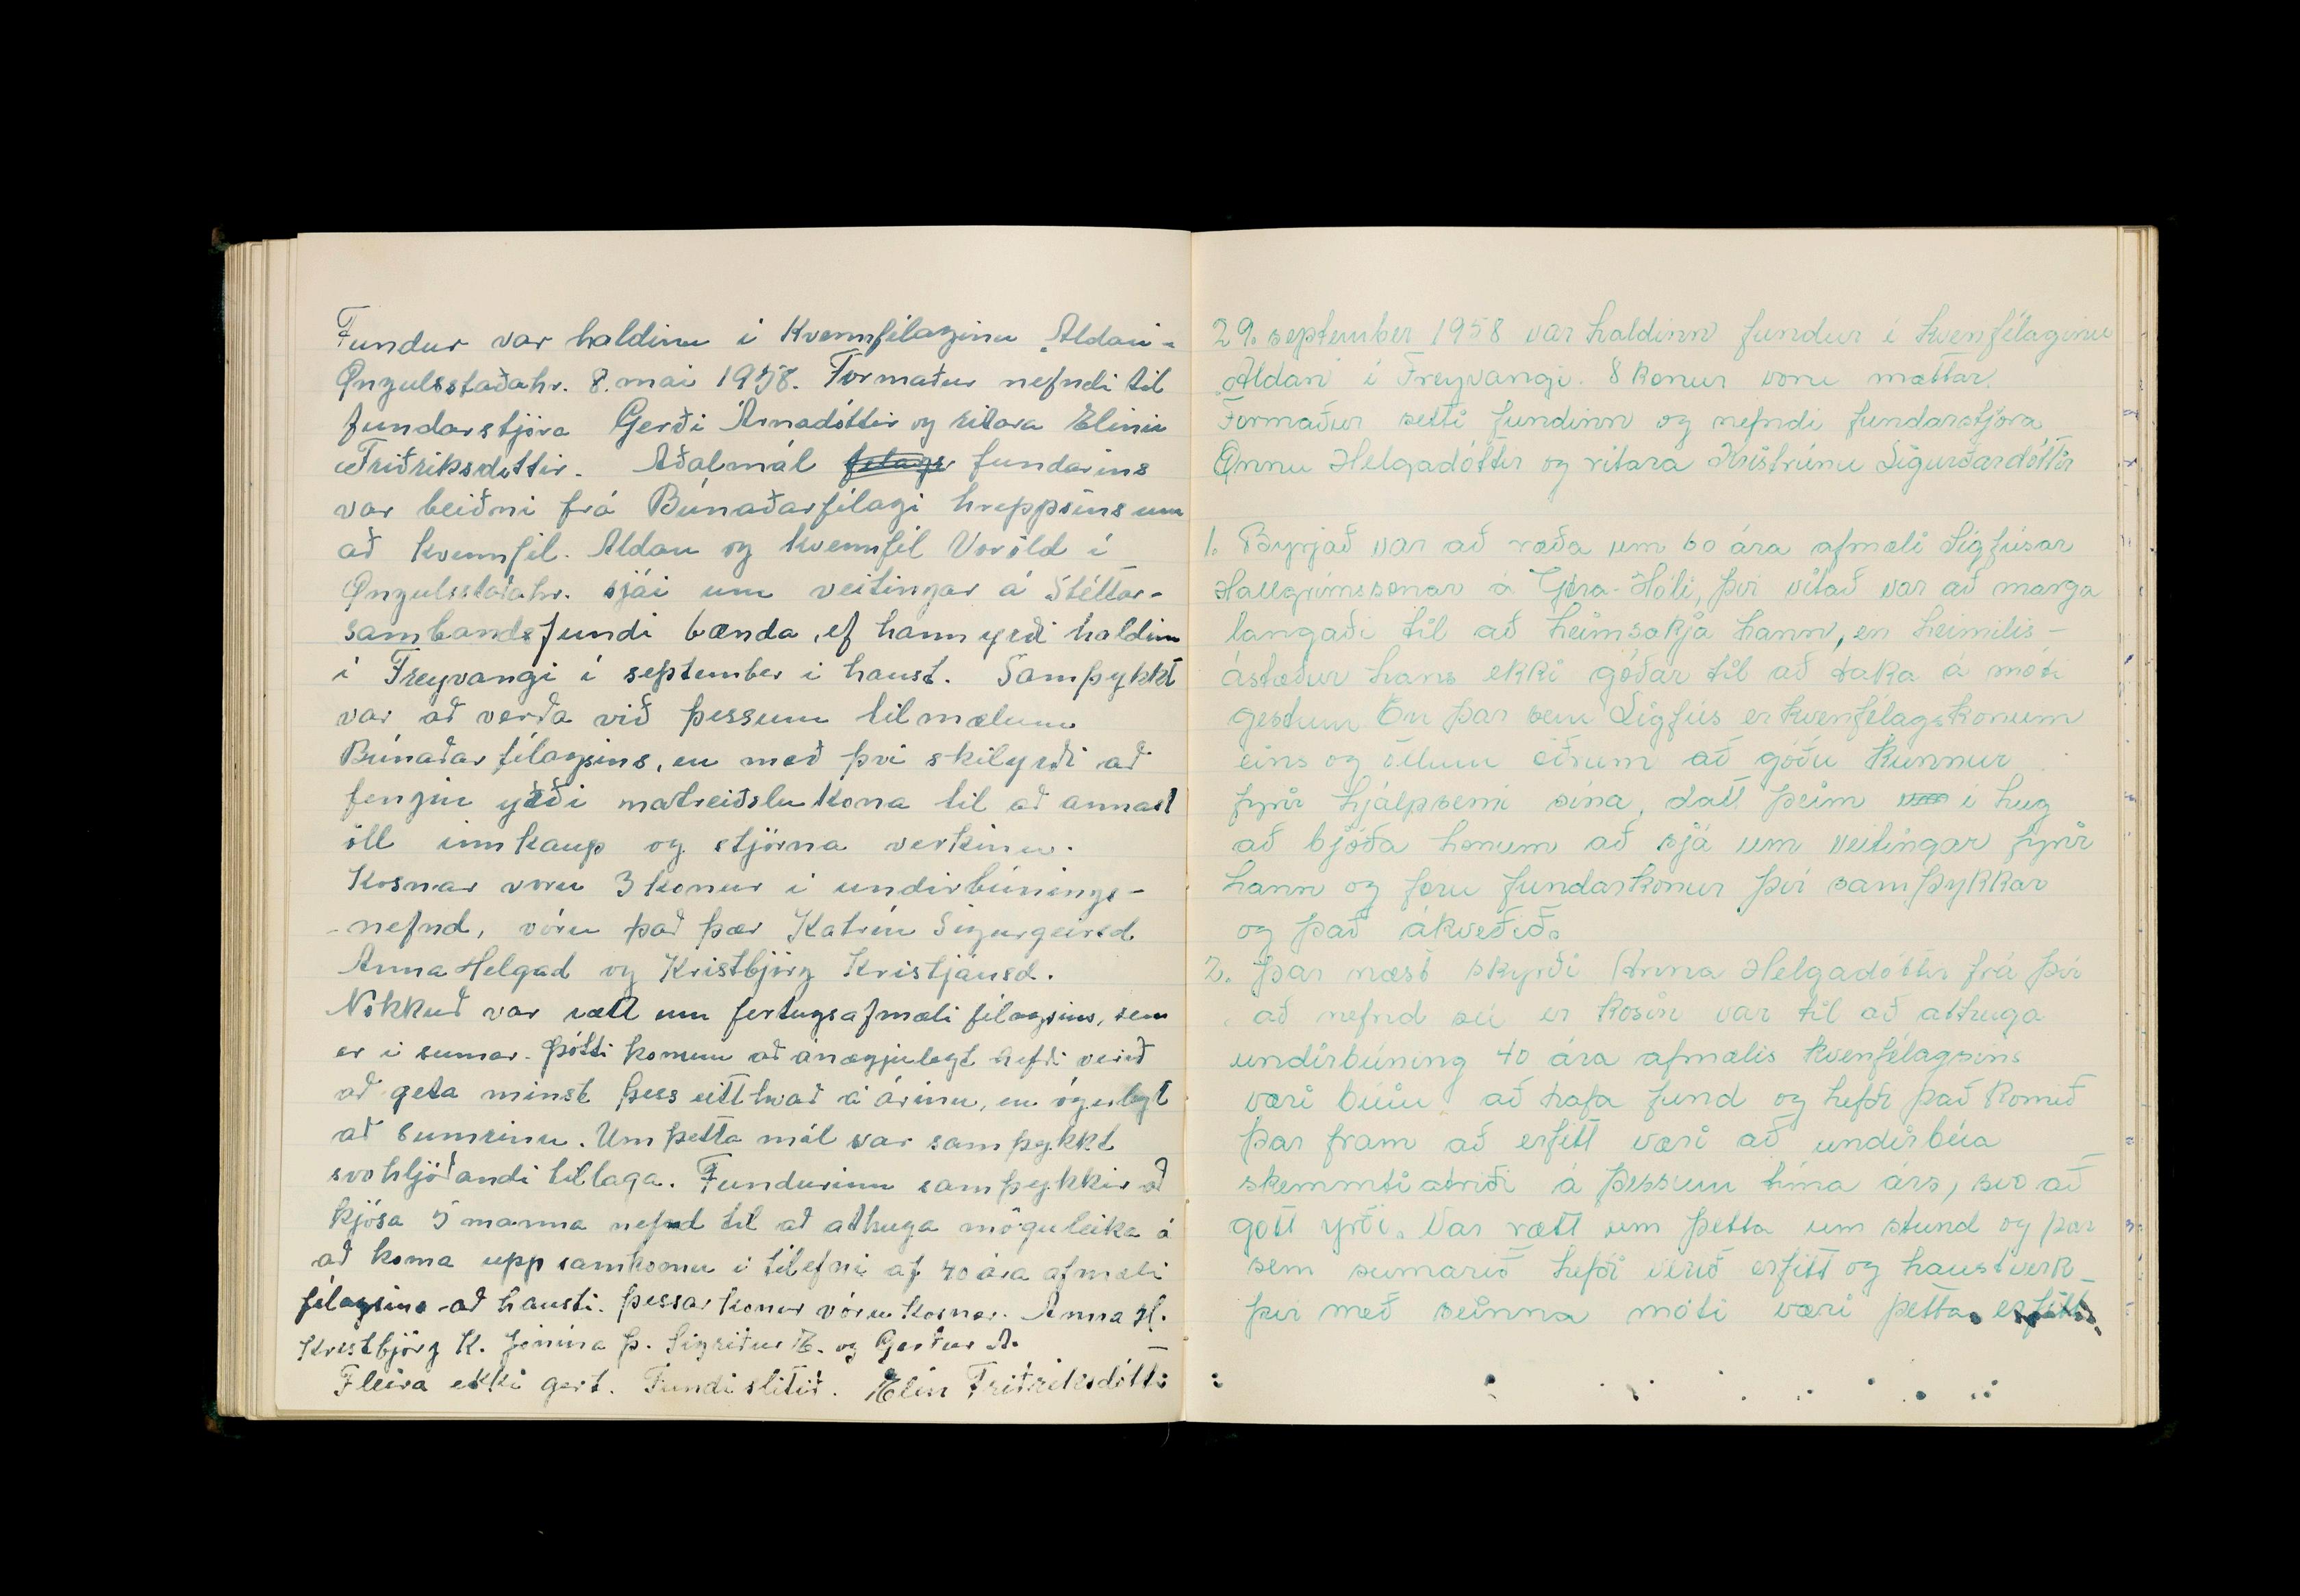 Fundur var haldinn í Kvennfélaginu „Aldan"-
Öngulsstaðahr. 8. mai 1958. Formaður nefndi til
fundarstjóra Gerði Árnadóttir og ritara Elínu
Friðriksdóttir. Aðalmál felags fundarins
var beiðni frá Búnaðarfélagi hreppsins um
að kvennfél. Aldan og kvennfél Voröld í
Öngulsstaðahr. sjái um veitingar á Stéttar-
sambandsfundi bænda, ef hann yrði haldinn
í Freyvangi í september í haust. Samþykkt
var að verða við þessum tilmælum
Búnaðarfélagsins, en með því skilyrði að
fengin yrði matreiðslukona til að annast
öll innkaup og stjórna verkinu.
Kosnar voru 3 konur í undirbúnings-
-nefnd, vóru það þær Katrín Sigurgeirsd
Anna Helgad og Kristbjörg Kristjánsd.
Nokkuð var rætt um fertugsafmæli félagsins, sem
er í sumar. Þótti konum að ánægjulegt hefði verið
að geta minst þess eitthvað á árinu, en ógulegt
að sumrinu. Um þetta mál var samþykkt
svohljóðandi tillaga. Fundurinn samþykkir að
kjósa 5 manna nefnd til að athuga möguleika á
að koma upp samkomu í tilefni af 40 ára afmæli
félagsins að hausti. Þessar konur vóru kosnar. Anna H.
Kristbjörg K. Jónína Þ. Sigríður E. og Gerður Á.
Fleira ekki gert. Fundi slitið. Elín Friðriksdóttir
29. september 1958 var haldinn fundur í kvenfélaginu
„Aldan" í Freyvangi. 8 konur voru mættar.
Formaður setti fundinn og nefndi fundarstjóra
Önnu Helgadóttir og ritara Kristrúnu Sigurðardóttir
1. Byrjað var að ræða um 60 ára afmæli Sigfúsar
Hallgrímssonar á Ytra-Hóli, því vitað var að marga
langaði til að heimsækja hann, en heimilis-
ástæður hans ekki góðar til að taka á móti
gestum En þar sem Sigfús er kvenfélagskonum
eins og öllum öðrum að góðu kunnur
fyrir hjálpsemi sína, datt þeim í hug
að bjóða honum að sjá um veitingar fyrir
hann og foru fundarkonur því samþykkar
og það ákveðið.
2. Þar næst skyrði Anna Helgadóttir frá því
að nefnd sú er kosin var til að athuga
undirbúning 40 ára afmælis kvenfélagsins
væri búin að hafa fund og hefði það komið
þar fram að erfitt væri að undirbúa
skemmtiatriði á þessum tíma árs, svo að
gott yrði. Var rætt um þetta um stund og þar
sem sumarið hefði verið erfitt og haustverk
því með seinna móti væri þetta erfitt.